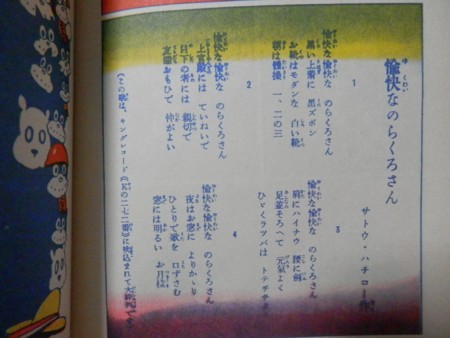 愉快なのらくろさん
サトウ・ハチロー作
1
愉快な愉快な のらくろさん
黒い上着に 黒ズボン
お靴はモダンな 白い靴
朝は體操 一、二の三
2
愉快な愉快な のらくろさん
上官殿には ていねいで
目下の者には 親切で
友達おもひで 仲がよい
3
愉快な愉快な のらくろさん
肩にハイナウ 腰に劍
足並そろへて 元氣よく
ひゞくラツパは トテチテタ
4
愉快な愉快な のらくろさん
夜はお窓に よりかゝり
ひとりで歌を 口ずさむ
窓には明るい お月さま
(この歌は、キングレコード(Kの二七二番)に吹込まれて大評判です。)